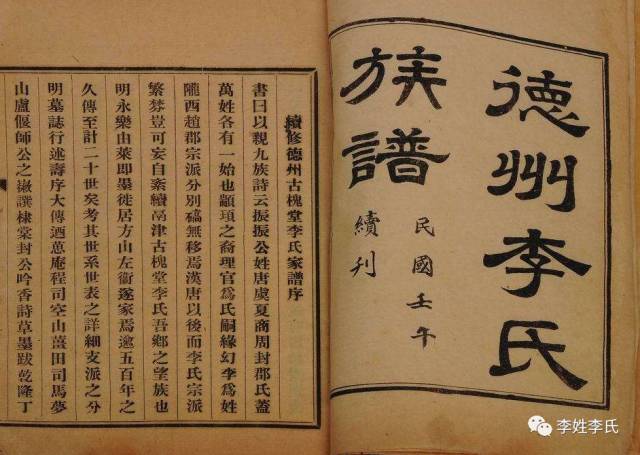 德州李氏
族譜
民國壬午
續刊
續修德州古槐堂李氏家譜序
書曰以親九族詩云振振公姓唐虞夏商周封郡氏蓋
萬姓各有一始也顓頊之裔理官爲氏嗣緣幻李爲姓
隴西趙郡宗派分別碻無移焉漢唐以後而李氏宗派
繁棼豈可妄自紊續鬲津古槐堂李氏吾鄉之望族也
明永樂由萊即墨徙居方山左衞遂家焉逾五百年之
久傳至計二十世矣考其世系世表之詳細支派之分
明墓誌行述壽序大傳酒意庵程司空山薑田司馬夢
山盧偃師公之嶽譔棣棠封公吟香詩草墨跋乾隆丁
李姓李氏